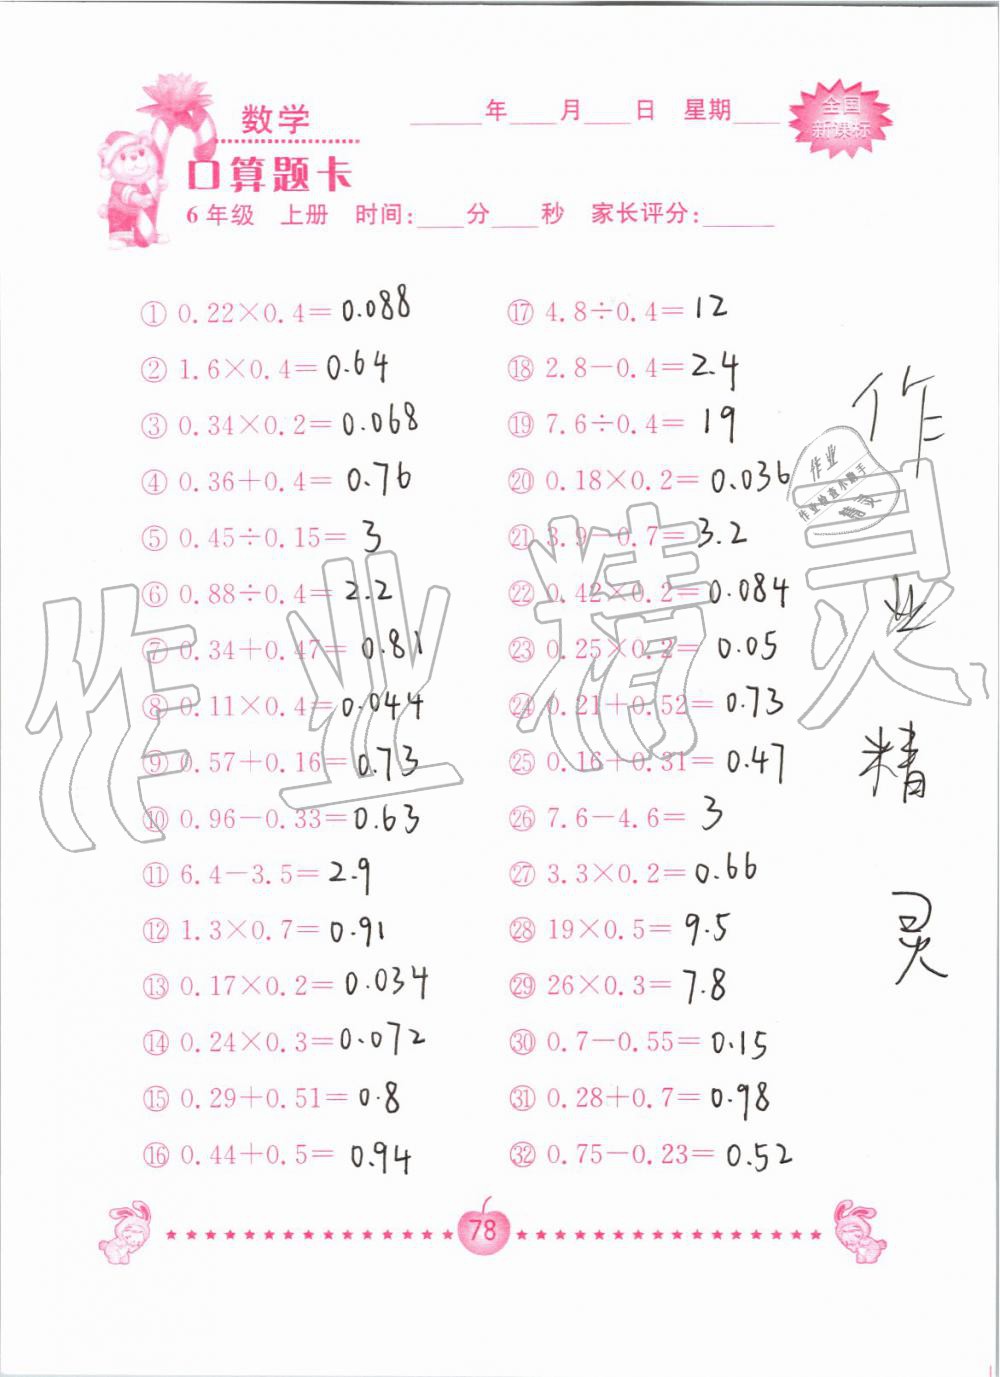 数学
____年____月____日 星期____
全国
新课标
口算题卡
6年级 上册 时间:____分____秒 家长评分:______
① 0.22×0.4=0.088
② 1.6×0.4=0.64
③ 0.34×0.2=0.068
④ 0.36+0.4=0.76
⑤ 0.45÷0.15=3
⑥ 0.88÷0.4=2.2
⑦ 0.34+0.47=0.81
⑧ 0.11×0.4=0.044
⑨ 0.57+0.16=0.73
⑩ 0.96-0.33=0.63
⑪ 6.4-3.5=2.9
⑫ 1.3×0.7=0.91
⑬ 0.17×0.2=0.034
⑭ 0.24×0.3=0.072
⑮ 0.29+0.51=0.8
⑯ 0.44+0.5=0.94
⑰ 4.8÷0.4=12
⑱ 2.8-0.4=2.4
⑲ 7.6÷0.4=19
⑳ 0.18×0.2=0.036
㉑ 3.9-0.7=3.2
㉒ 0.42×0.2=0.084
㉓ 0.25×0.2=0.05
㉔ 0.21+0.52=0.73
㉕ 0.16+0.31=0.47
㉖ 7.6-4.6=3
㉗ 3.3×0.2=0.66
㉘ 19×0.5=9.5
㉙ 26×0.3=7.8
㉚ 0.7-0.55=0.15
㉛ 0.28+0.7=0.98
㉜ 0.75-0.23=0.52
作业精灵
作
业
精
灵
作业
78